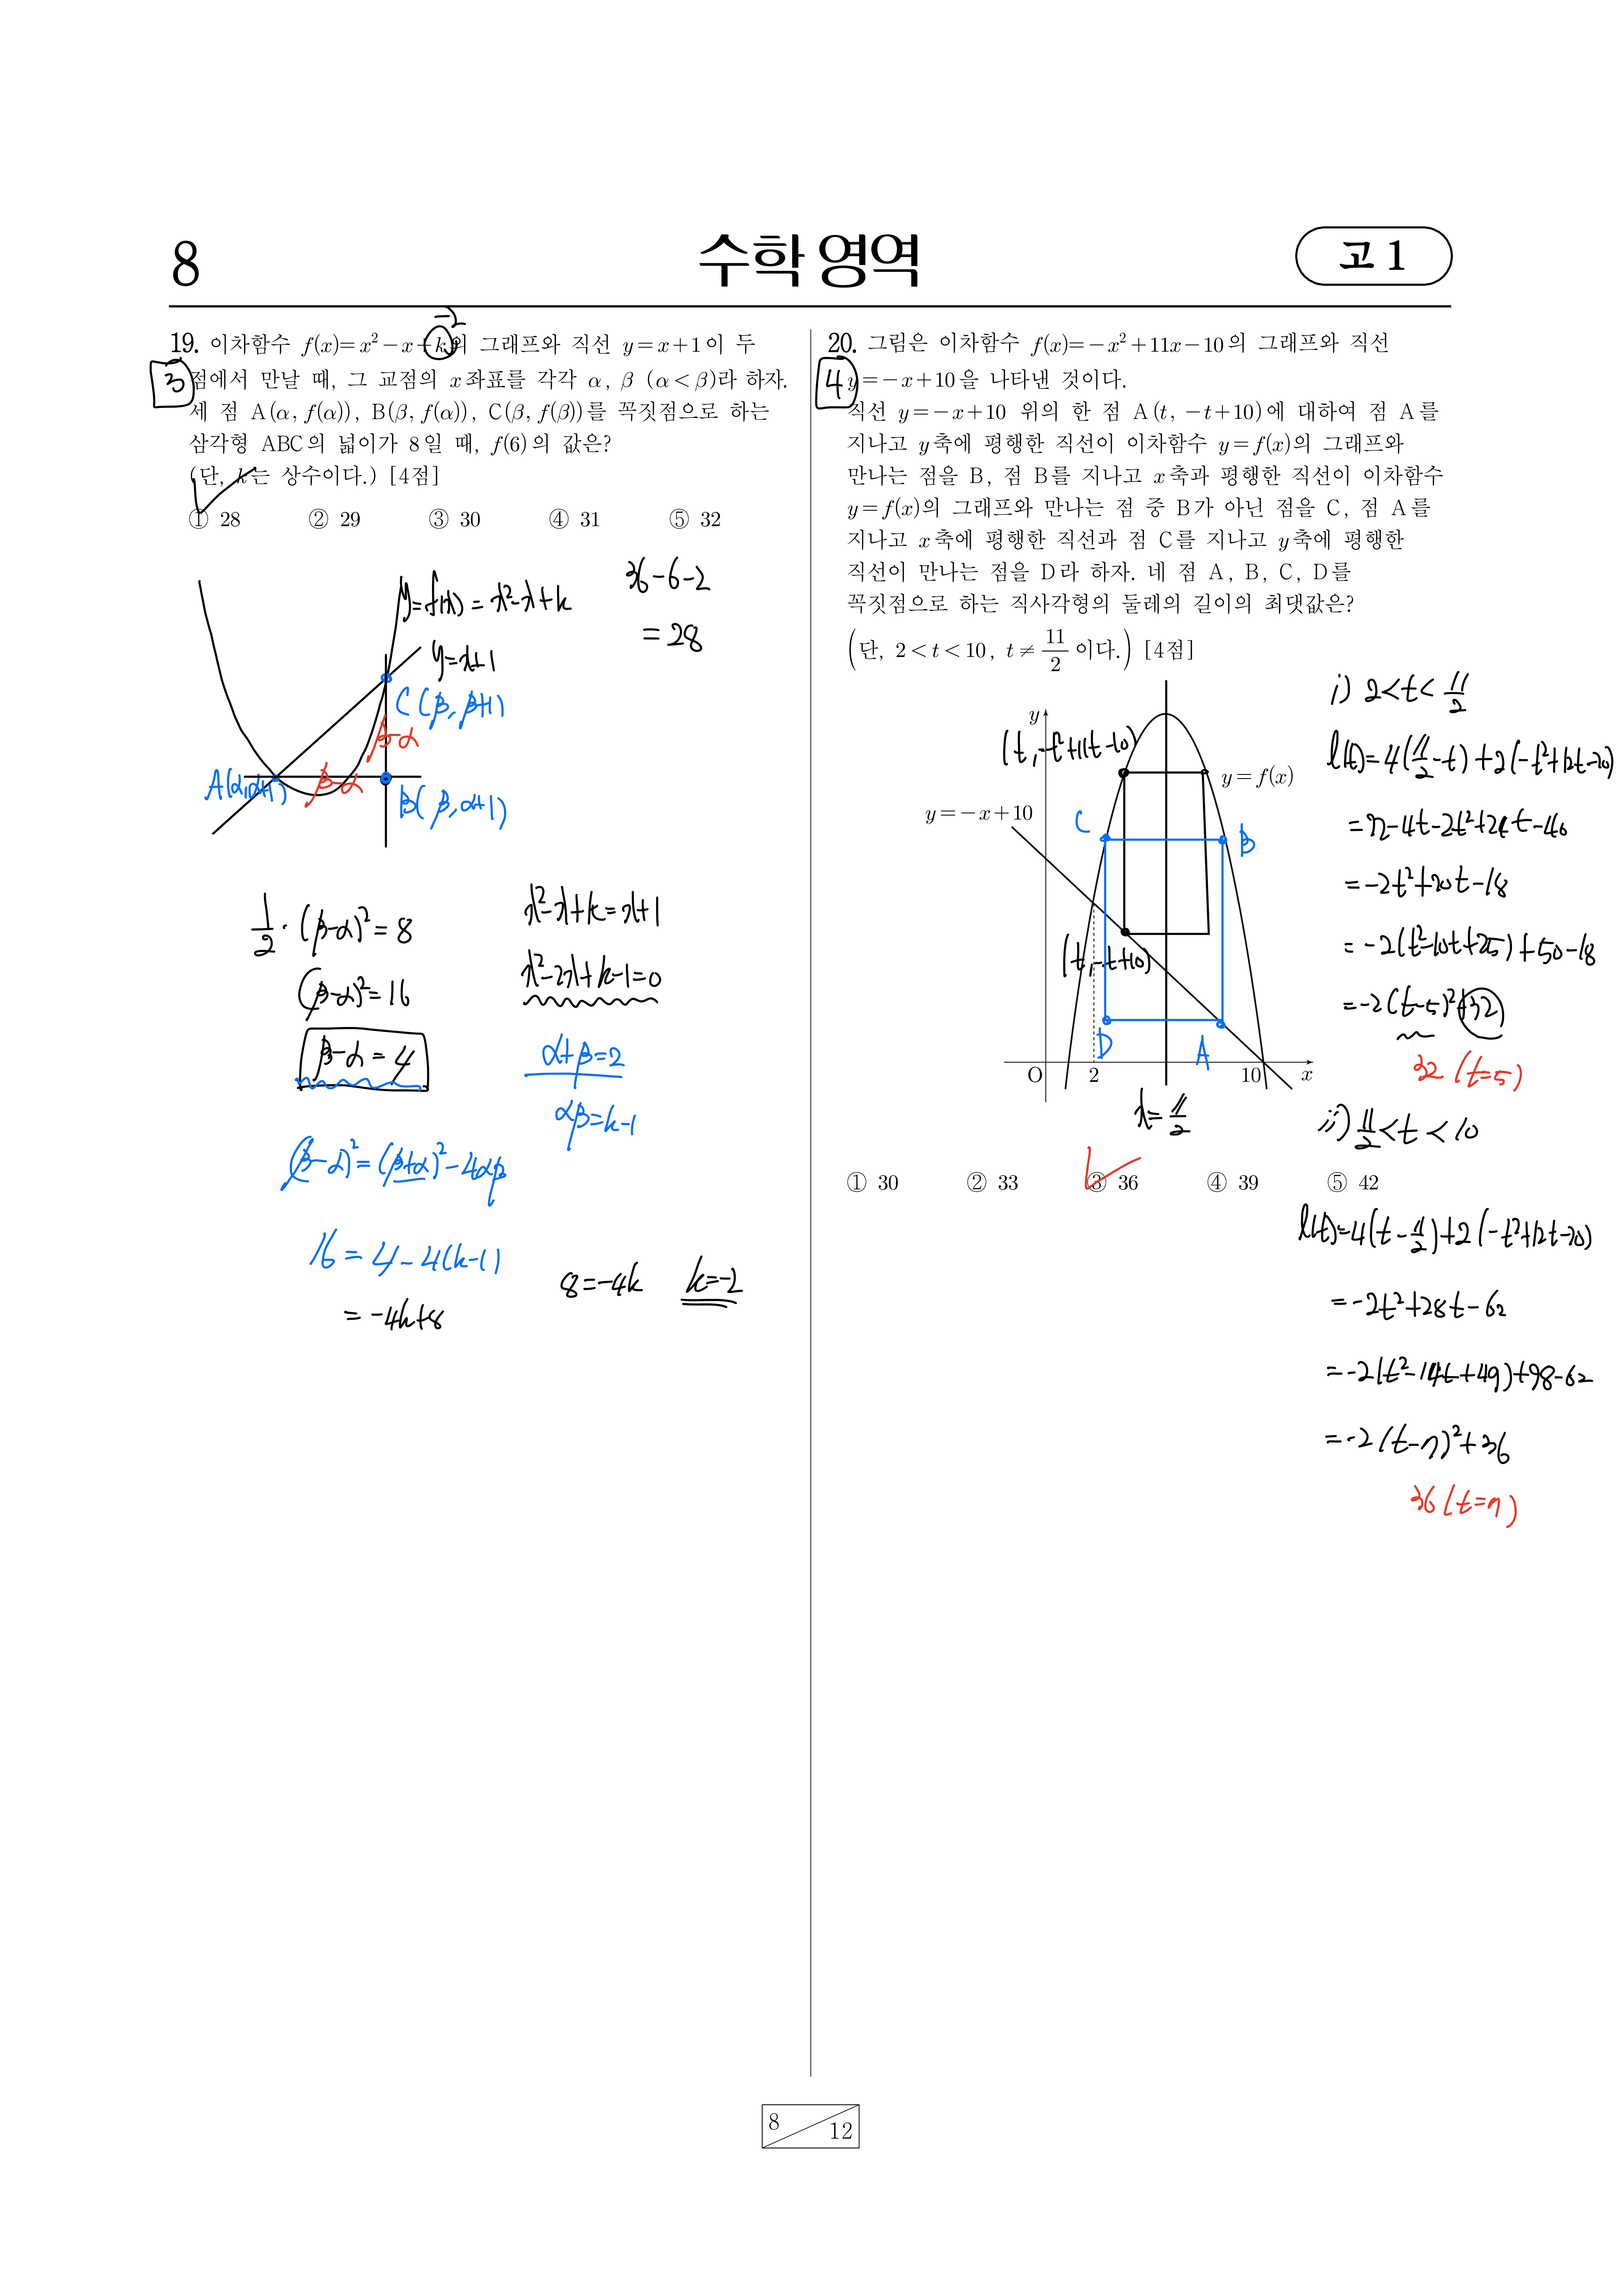 8
수학 영역
고 1
19. 이차함수 f(x)=x²-x+k의 그래프와 직선 y=x+1이 두
-2
3
점에서 만날 때, 그 교점의 x좌표를 각각 α, β (α<β)라 하자.
세 점 A(α, f(α)), B(β, f(α)), C(β, f(β))를 꼭짓점으로 하는
삼각형 ABC의 넓이가 8일 때, f(6)의 값은?
(단, k는 상수이다.) [4점]
① 28 ② 29 ③ 30 ④ 31 ⑤ 32
36-6-2
=28
y=f(x)=x²-x+k
y=x+1
C(β, β+1)
β-α
A(α,α+1)
β-α
B(β, α+1)
1/2·(β-α)²=8
(β-α)²=16
β-α=4
x²-x+k=x+1
x²-2x+k-1=0
α+β=2
αβ=k-1
(β-α)²=(β+α)²-4αβ
16=4-4(k-1)
=-4k+8
8=-4k k=-2
20. 그림은 이차함수 f(x)=-x²+11x-10의 그래프와 직선
4
y=-x+10을 나타낸 것이다.
직선 y=-x+10 위의 한 점 A(t, -t+10)에 대하여 점 A를
지나고 y축에 평행한 직선이 이차함수 y=f(x)의 그래프와
만나는 점을 B, 점 B를 지나고 x축과 평행한 직선이 이차함수
y=f(x)의 그래프와 만나는 점 중 B가 아닌 점을 C, 점 A를
지나고 x축에 평행한 직선과 점 C를 지나고 y축에 평행한
직선이 만나는 점을 D라 하자. 네 점 A, B, C, D를
꼭짓점으로 하는 직사각형의 둘레의 길이의 최댓값은?
(단, 2<t<10, t≠11/2이다.) [4점]
y
(t, -t²+11t-10)
y=f(x)
y=-x+10
C
B
(t, -t+10)
D
A
O 2 10 x
x=11/2
① 30 ② 33 ③ 36 ④ 39 ⑤ 42
i) 2<t<11/2
l(t)=4(11/2-t)+2(-t²+12t-20)
=22-4t-2t²+24t-40
=-2t²+20t-18
=-2(t²-10t+25)+50-18
=-2(t-5)²+32
32 (t=5)
ii) 11/2<t<10
l(t)=4(t-11/2)+2(-t²+12t-20)
=-2t²+28t-62
=-2(t²-14t+49)+98-62
=-2(t-7)²+36
36 (t=7)
8
12